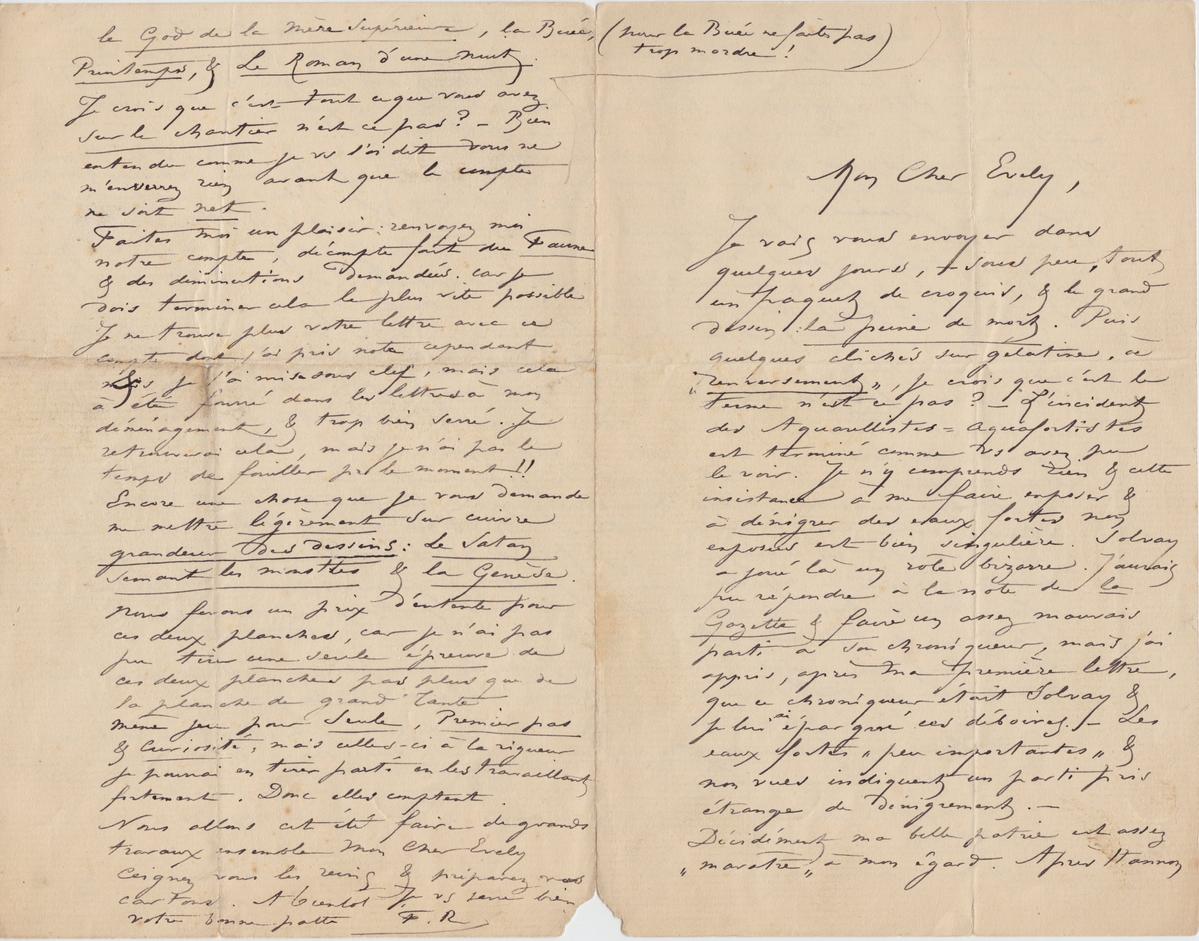 Mon Cher Evely,
Je vais vous envoyer dans
quelques jours, – sous peu, tout
un paquet de croquis, & le grand
dessin : la peine de mort. Puis
quelques clichés sur gélatine, à
"renversement", je crois que c'est le
terme n'est ce pas ? – L'incident
des Aquarellistes = Aquafortistes
est terminé comme vs avez pu
le voir. Je n'y comprends rien & cette
insistance à me faire exposer &
à dénigrer des eaux fortes non
exposées est bien singulière. Solvay
a joué là un rôle bizarre. J'aurais
pu répondre à la note de la
Gazette & faire un assez mauvais
parti à son chroniqueur, mais j'ai
appris, après ma première lettre,
que ce chroniqueur était Solvay &
je lui ai épargné ces déboires. – Les
eaux fortes "peu importantes" &
non vues indiquent un parti pris
étrange de dénigrement. –
Décidément ma belle patrie est assez
"maratre" à mon égard. Apres Hannon
le God de la Mère Supérieure, la Buée, (pour la Buée ne faites pas
trop mordre !)
Printemps, & Le Roman d'une nuit.
Je crois que c'est tout ce que vous avez
sur le chantier n'est ce pas ? – Bien
entendu comme je vs l'ai dit vous ne
m'enverrez rien avant que le compte
ne soit net.
Faites moi un plaisir : renvoyez moi
notre compte, décompte fait du Faune
& des diminutions demandées. car je
dois terminer cela le plus vite possible
Je ne trouve plus votre lettre avec ce
compte dont j'ai pris note cependant
je l'ai mise sous clef, mais cela
à été fourré dans les lettres à mon
déménagement, & trop bien serré. Je
retrouverai cela, mais je n'ai pas le
temps de fouiller pr le moment !!
Encore une chose que je vous demande
me mettre légèrement sur cuivre
grandeur des dessins : Le Satan
semant les monstres & la Genèse.
nous ferons un prix d'entente pour
ces deux planches, car je n'ai pas
pu tirer une seule épreuve de
ces deux planches pas plus que de
la planche de grand Tante
même jeu pour Seule, Premier pas
& Curiosité, mais celles-ci à la rigueur
je pourrai en tirer parti en les travaillant
fortement. Donc elles comptent.
Nous allons cet été faire de grands
travaux ensemble Mon Cher Evely
Ceignez vous les reins & préparez vos
cartons. A bientot Je vs serre bien
votre bonne patte F. R